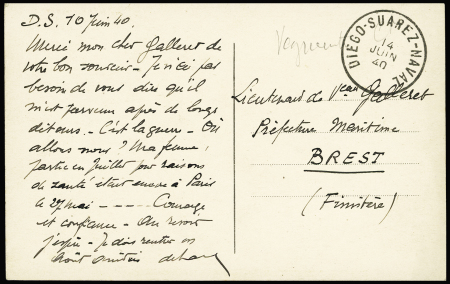 D.S. 10 Juin 40.
Merci mon cher Galleret de
votre bon souvenir - Je n'ai pas
besoin de vous dire qu'il
m'est parvenu après de longs
détours - C'est la guerre - Où
allons nous ? Ma femme,
partie en Juillet pour raisons
de santé était encore à Paris
le 27 mai - - - - - Courage
et confiance - Au revoir
j'espère - Je dois rentrer en
Août
DIEGO-SUAREZ-NAVAL
14
JUIN
40
Lieutenant de Veau Galleret
Préfecture Maritime
BREST
(Finistère)